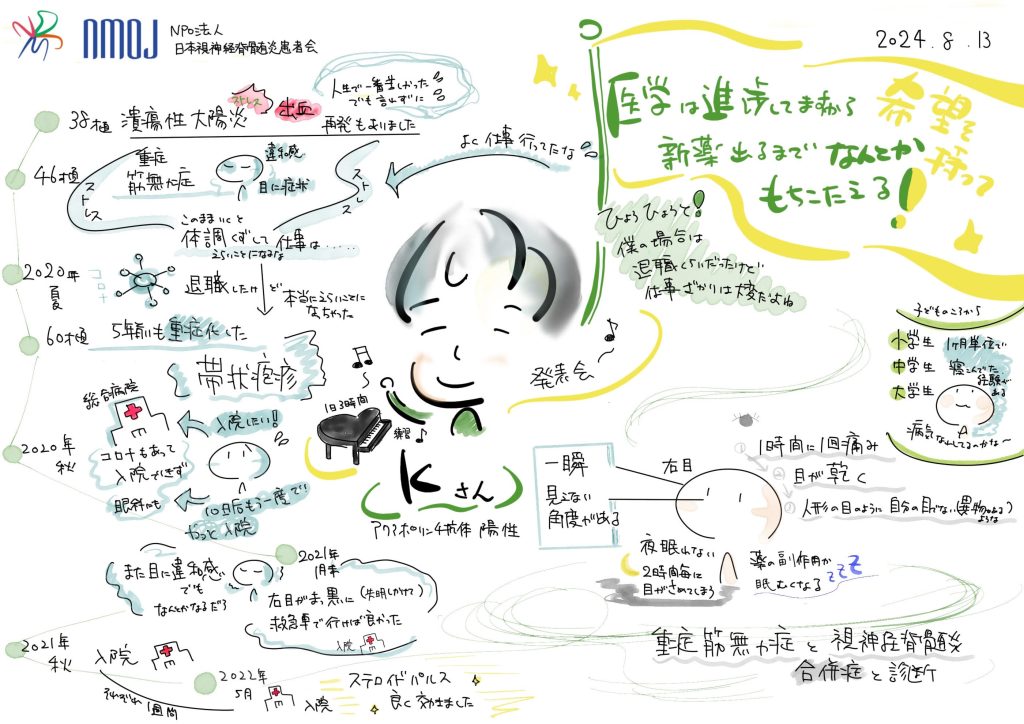 NMOJ
NPO法人
日本視神経脊髄炎患者会
2024.8.13
医学は進歩してますから
新薬出るまで なんとか
もちこたえる!
希望を
持って
人生で一番苦しかった
でも言わずに
38歳 潰瘍性大腸炎
ストレス
出血
再発もありました
よく仕事行ってたな
46歳
ストレス
重症
筋無力症
違和感
目に症状
ストレス
このままいくと
体調くずして仕事は......
えらいことになるな
2020年
夏
コロナ
退職したけど
本当にえらいことに
なっちゃった
60歳 5年前にも重症化した
帯状疱疹
総合病院
入院したい!
2020年
秋
コロナもあって
入院できず
眼科にも
10日后もう一度で
やっと入院
2021年
また目に違和感
でも
なんとかなるだろ
右目がまっ黒に(失明しかけて)
救急車で行けば良かった
入院
2021年
秋
入院
それぞれ1週間
2022年
5月
入院
ステロイドパルス
良く効きました
ひょうひょうと!
僕の場合は
退職くらいだったけど
仕事ざかりは大変だよね
発表会
1日3時間
練習
Kさん
アクアポリン4抗体 陽性
子どものころから
小学生
中学生
大学生
1ヶ月単位で
寝こんでた
経験がある
病気なんてするのかな〜
一瞬
見えない
角度がある
右目
① 1日時間に1回痛み
② 目が乾く
③ 人形の目のように自分の目じゃない(異物がある)
ような
夜眠れない
2時間毎に
目がさめてしまう
薬の副作用か
眠むくなる
zzz
重症筋無力症と視神経脊髄炎
合併症と診断